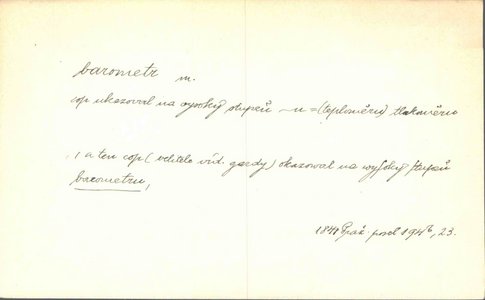 barometr m.
cop ukazoval na vysoký stupeň ~u = (teploměru) tlakoměru
, a ten cop ( velitele víd. gardy) okazoval na wysoký stupeň
barometru,
1841 Praž. posel 194b, 23.